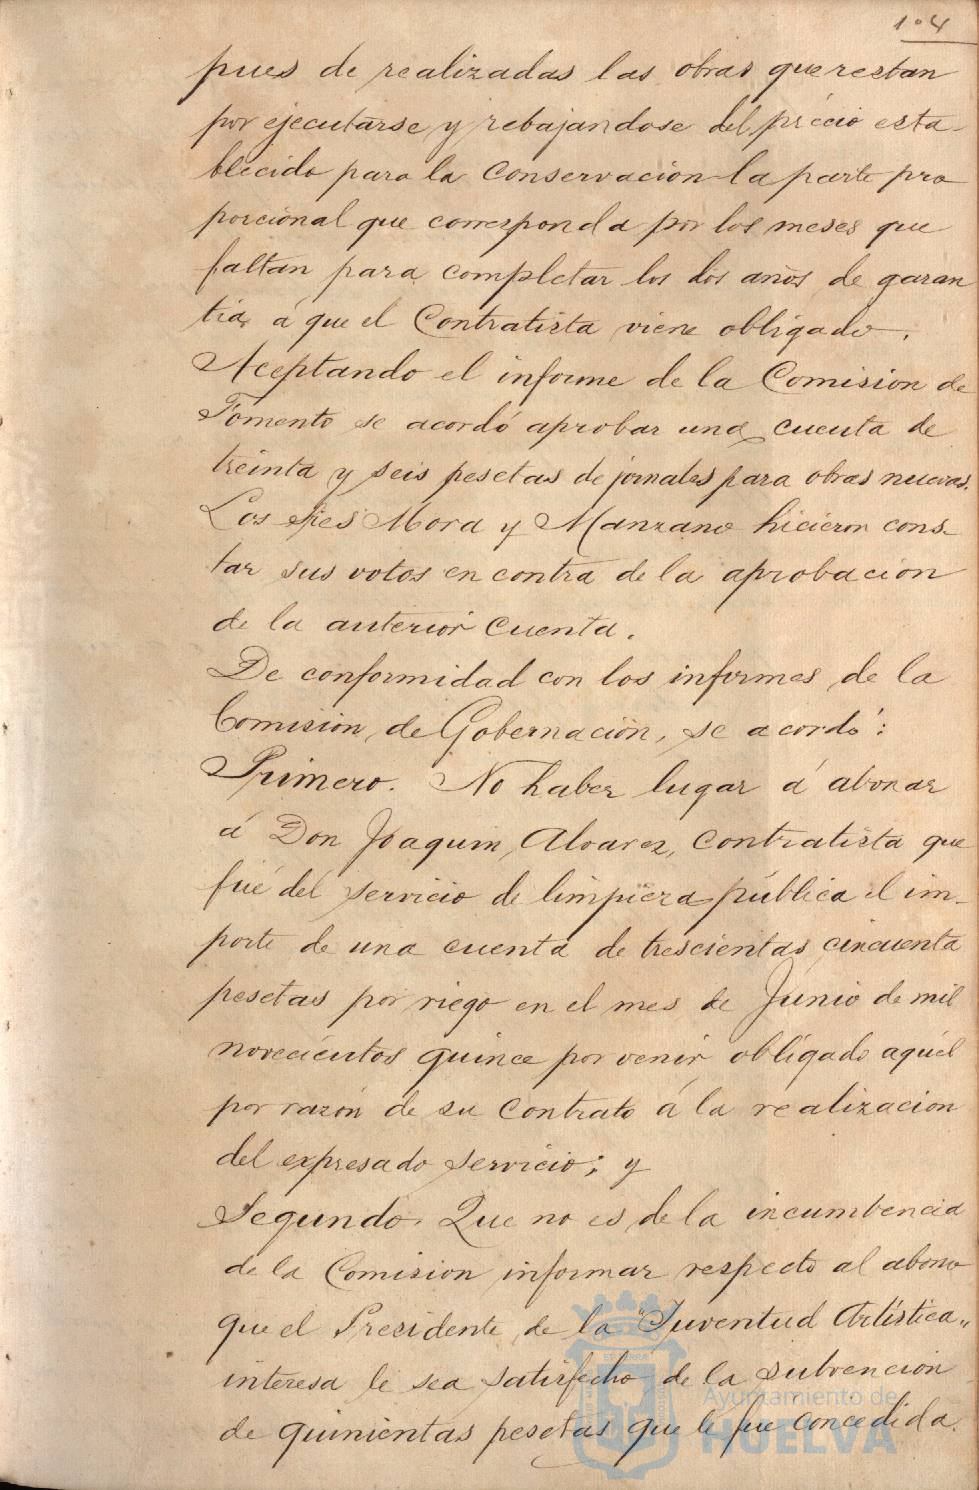 104
pues de realizadas las obras que restan
por ejecutarse y rebajandose del précio esta-
blecido para la conservacion la parte pro
porcional que corresponda por los meses que
faltan para completar los dos años de garan
tia, á que el Contratista viene obligado.
Aceptando el informe de la Comision de
Fomento se acordó aprobar una cuenta de
treinta y seis pesetas de jornales para obras nuevas.
Los Mora y Manzano hicieron cons-
tar sus votos en contra de la aprobacion
de la anterior cuenta.
De conformidad con los informes de la
Comision de Gobernación, se acordó:
Primero. No haber lugar á abonar
á Don Joaquin Alvarez, contratista que
fué del servicio de limpieza pública el im-
porte de una cuenta de trescientas cincuenta
pesetas por riego en el mes de Junio de mil
novecientos quince por venir obligado aquél
por razón de su contrato á la realizacion
del expresado servicio; y
Segundo. Que no es de la incumbencia
de la Comision informar respecto al abono
que el Presidente de la "Juventud Artística"
interesa le sea satisfecho de la subvencion
de quinientas pesetas que le fue concedida.
Ayuntamiento de
HUELVA